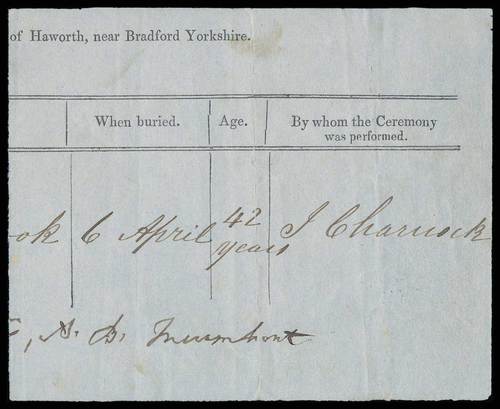 of Haworth, near Bradford Yorkshire.
When buried. Age. By whom the Ceremony
was performed.
ok 6 April 42 years J Charnock
A. B.